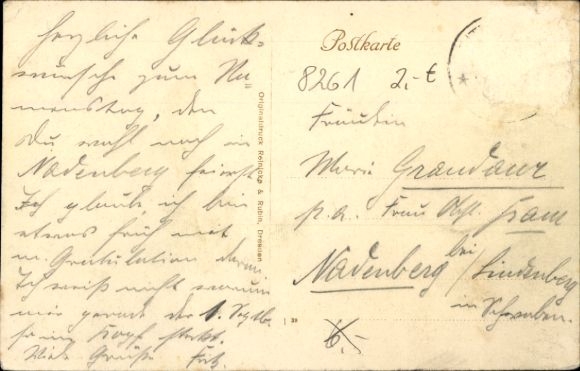 Herzliche Glück-
wünsche zum Na-
menstag, den
Du wohl noch in
Nadenberg feierst.
Ich glaube, ich bin
etwas früh mit
m. Gratulation daran.
Ich weiß nicht warum
mir gerade der 1. Septb.
so im Kopf steckt.
Viele Grüße Fritz.
Originaldruck Reinicke & Rubin, Dresden
Postkarte
8261 2,- €
Fräulein
Marie Grandaur
p. a. Frau
Nadenberg bei Lindenberg
in Schwaben.
6,-